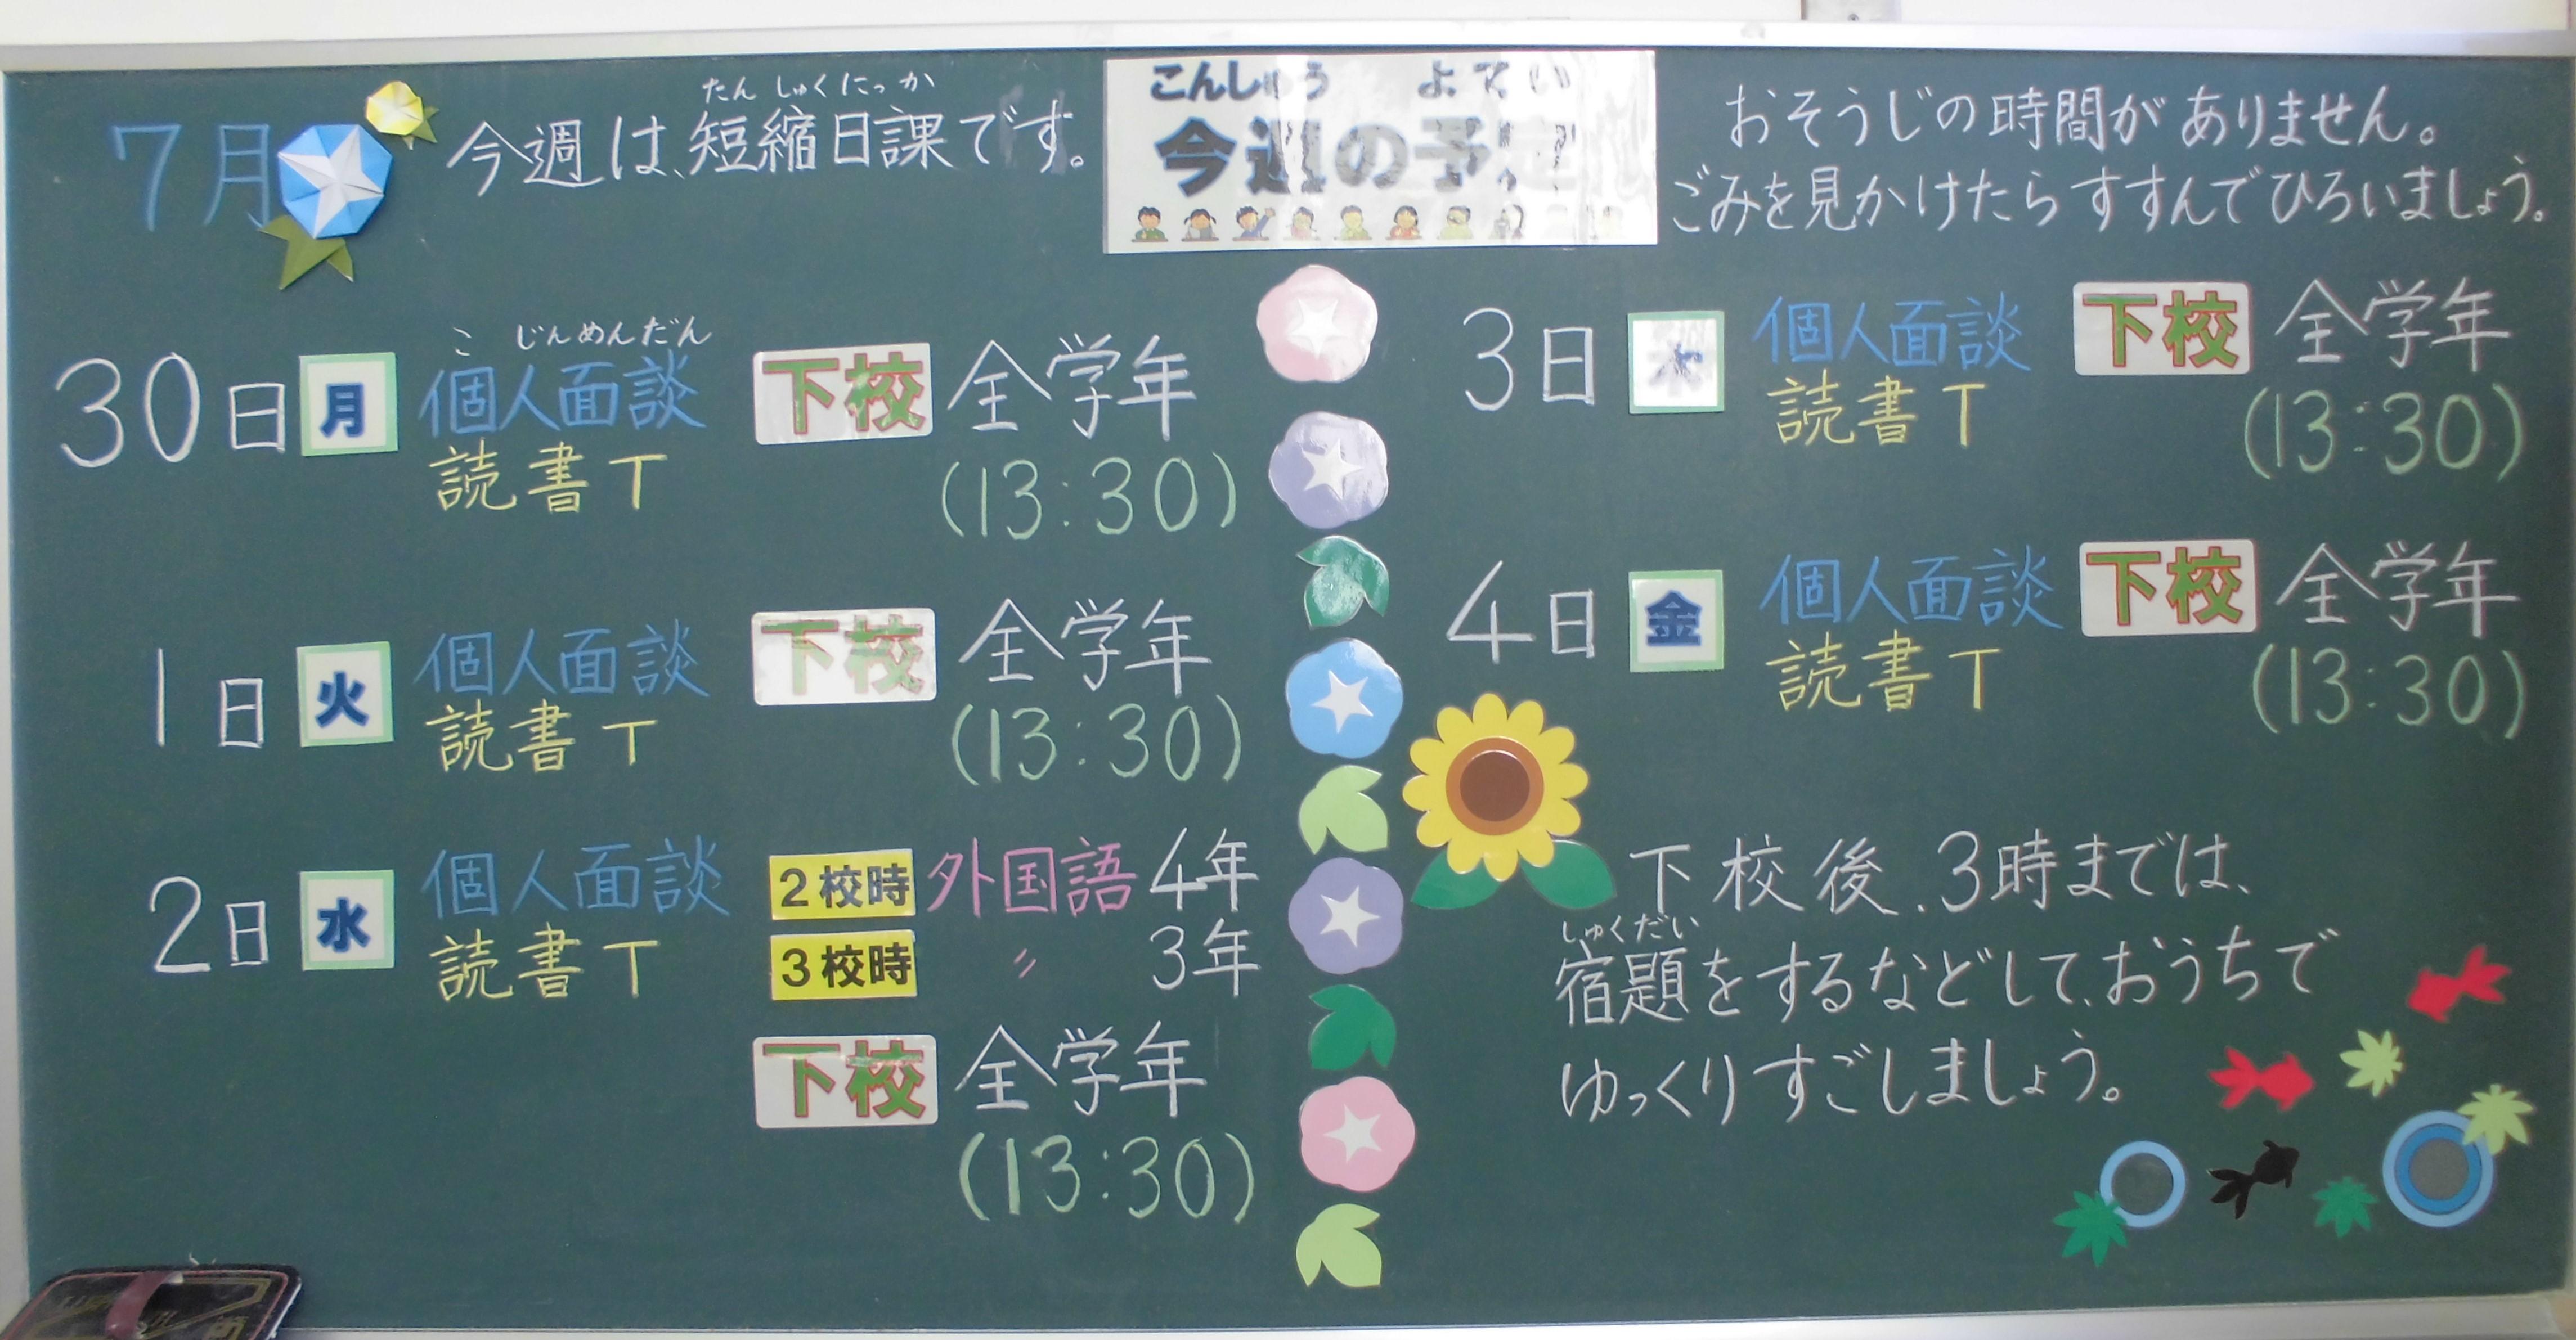 7月
たんしゅくにっか
今週は、短縮日課です。
こんしゅう よてい
今週の予定
おそうじの時間がありません。
ごみを見かけたらすすんでひろいましょう。
こじんめんだん
30日 月 個人面談 下校 全学年
読書T (13:30)
1日 火 個人面談 下校 全学年
読書T (13:30)
2日 水 個人面談 2校時 外国語 4年
読書T 3校時 〃 3年
下校 全学年
(13:30)
3日 木 個人面談 下校 全学年
読書T (13:30)
4日 金 個人面談 下校 全学年
読書T (13:30)
下校後、3時までは、
しゅくだい
宿題をするなどして、おうちで
ゆっくりすごしましょう。